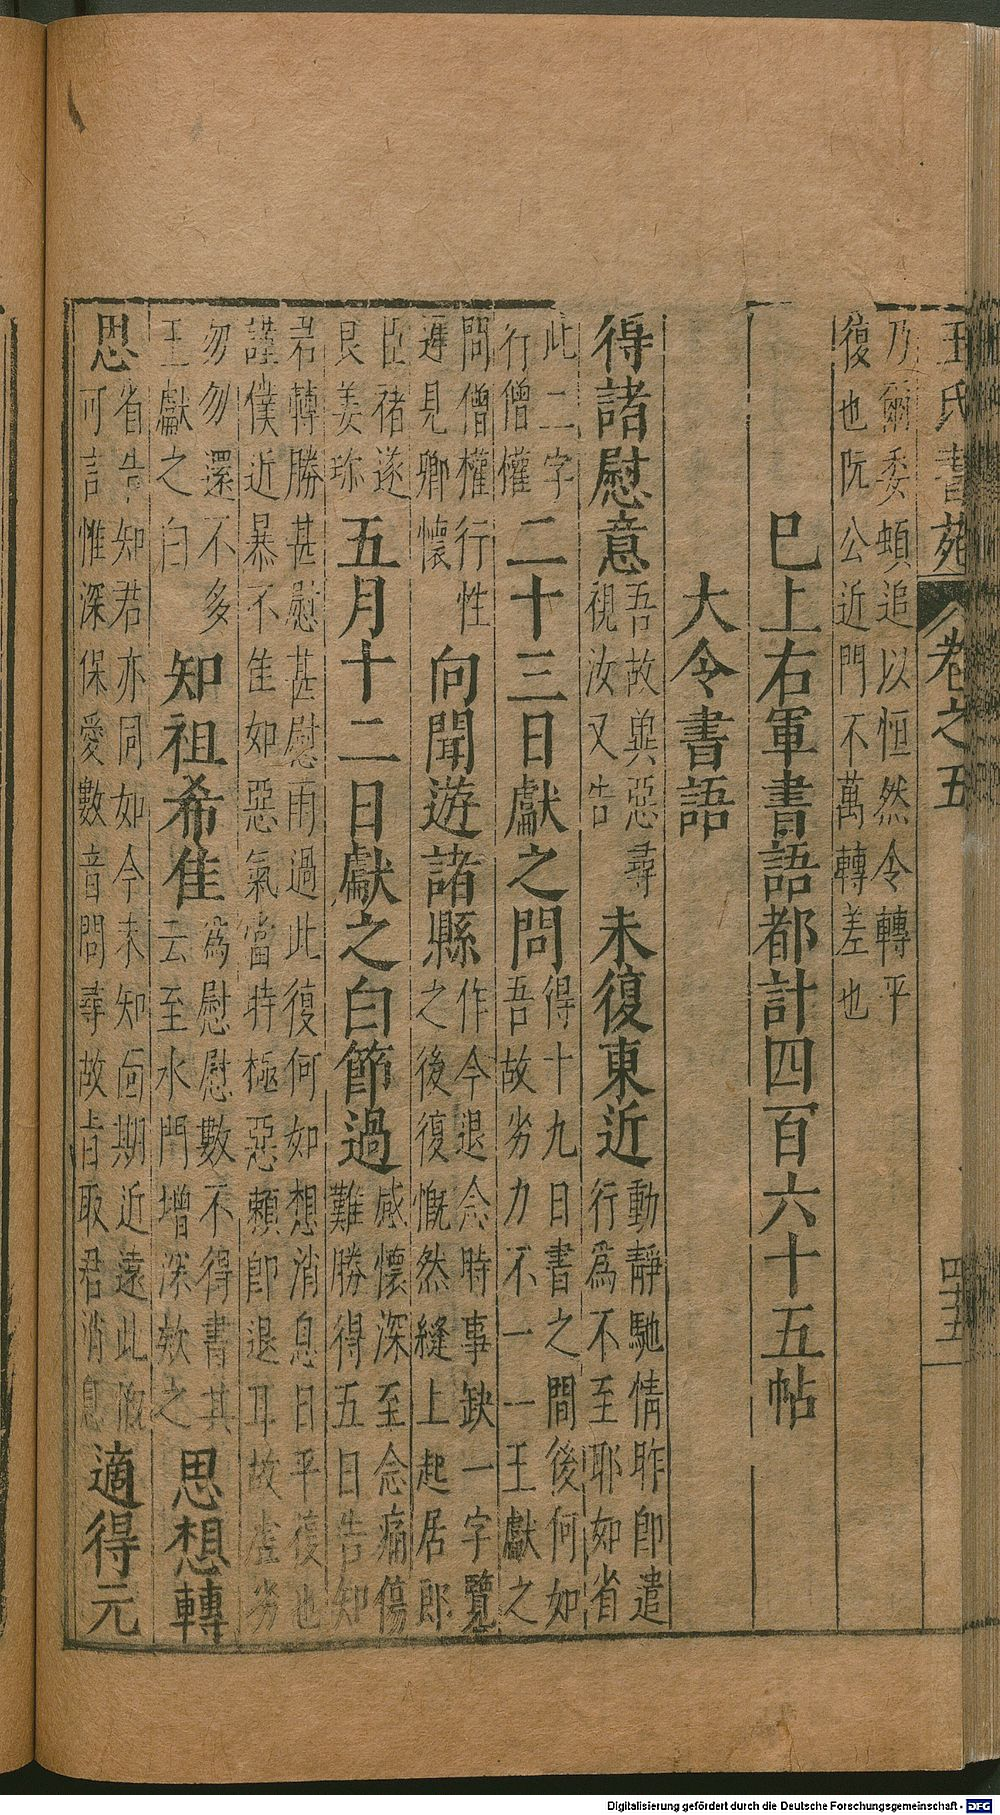 王氏書苑 卷之五 四十五
乃爾委頓追以恒然令轉平
復也阮公近門不萬轉差也
巳上右軍書語都計四百六十五帖
大令書語
得諸慰意吾故興惡尋視汝又告未復東近動靜馳情昨卽遣行爲不至耶如省
此二字行僧權二十三日獻之問得十九日書之間後何如吾故劣力不一一王獻之
問僧權行性遲見卿懷向聞遊諸縣作今退念時事缺一字覽之後復慨然縫上起居郎
臣褚遂良姜珎五月十二日獻之白節過感懷深至念痛傷難勝得五日告知
君轉勝甚慰甚慰雨過此復何如想消息日平復也謹僕近暴不佳如惡氣當時極惡賴卽退耳故虛劣
勿勿還不多王獻之白知祖希佳爲慰慰數不得書其去至水門增深欵之思想轉
思省告知君亦同如今未知面期近遠此慨可言惟深保愛數音問尋故旨取君消息適得元
Digitalisierung gefördert durch die Deutsche Forschungsgemeinschaft - DFG